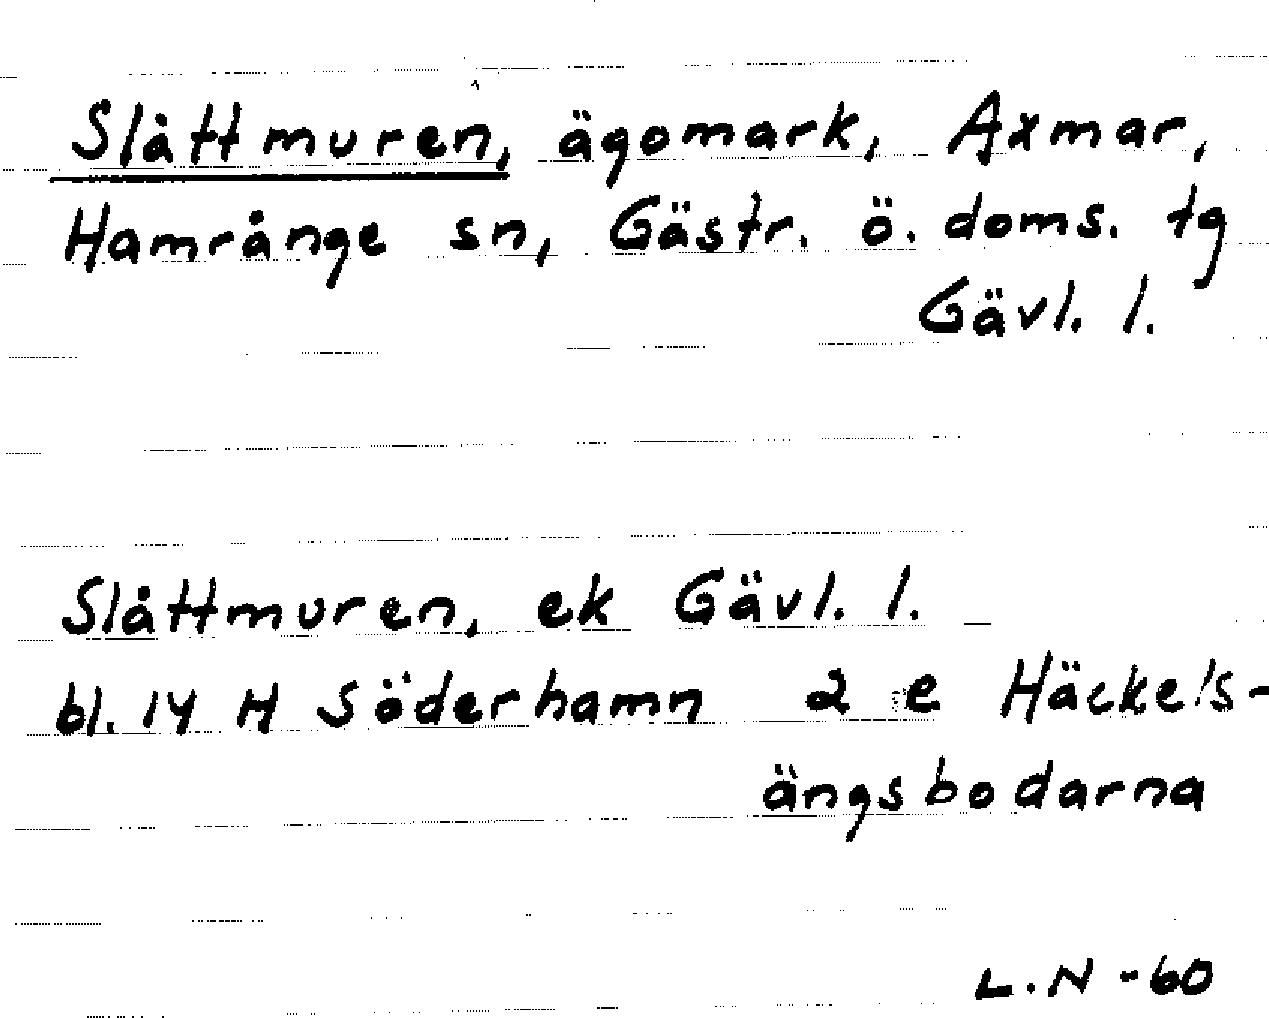 Slåttmuren, ägomark, Axmar,
Hamrånge sn, Gästr. ö. doms. tg
Gävl. l.
Slåttmuren, ek Gävl. l.
bl. 14 H Söderhamn 2 e Häckels-
ängsbodarna
L.N -60